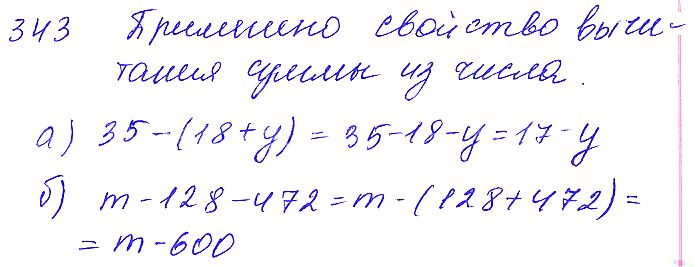 343 Применено свойство вычи-
тания суммы из числа.
а) 35-(18+y) = 35-18-y=17-y
б) m-128-472=m-(128+472)=
=m-600